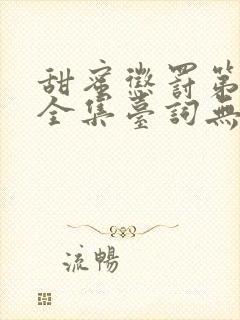 甜蜜懲罰第
全集臺詞無
流暢